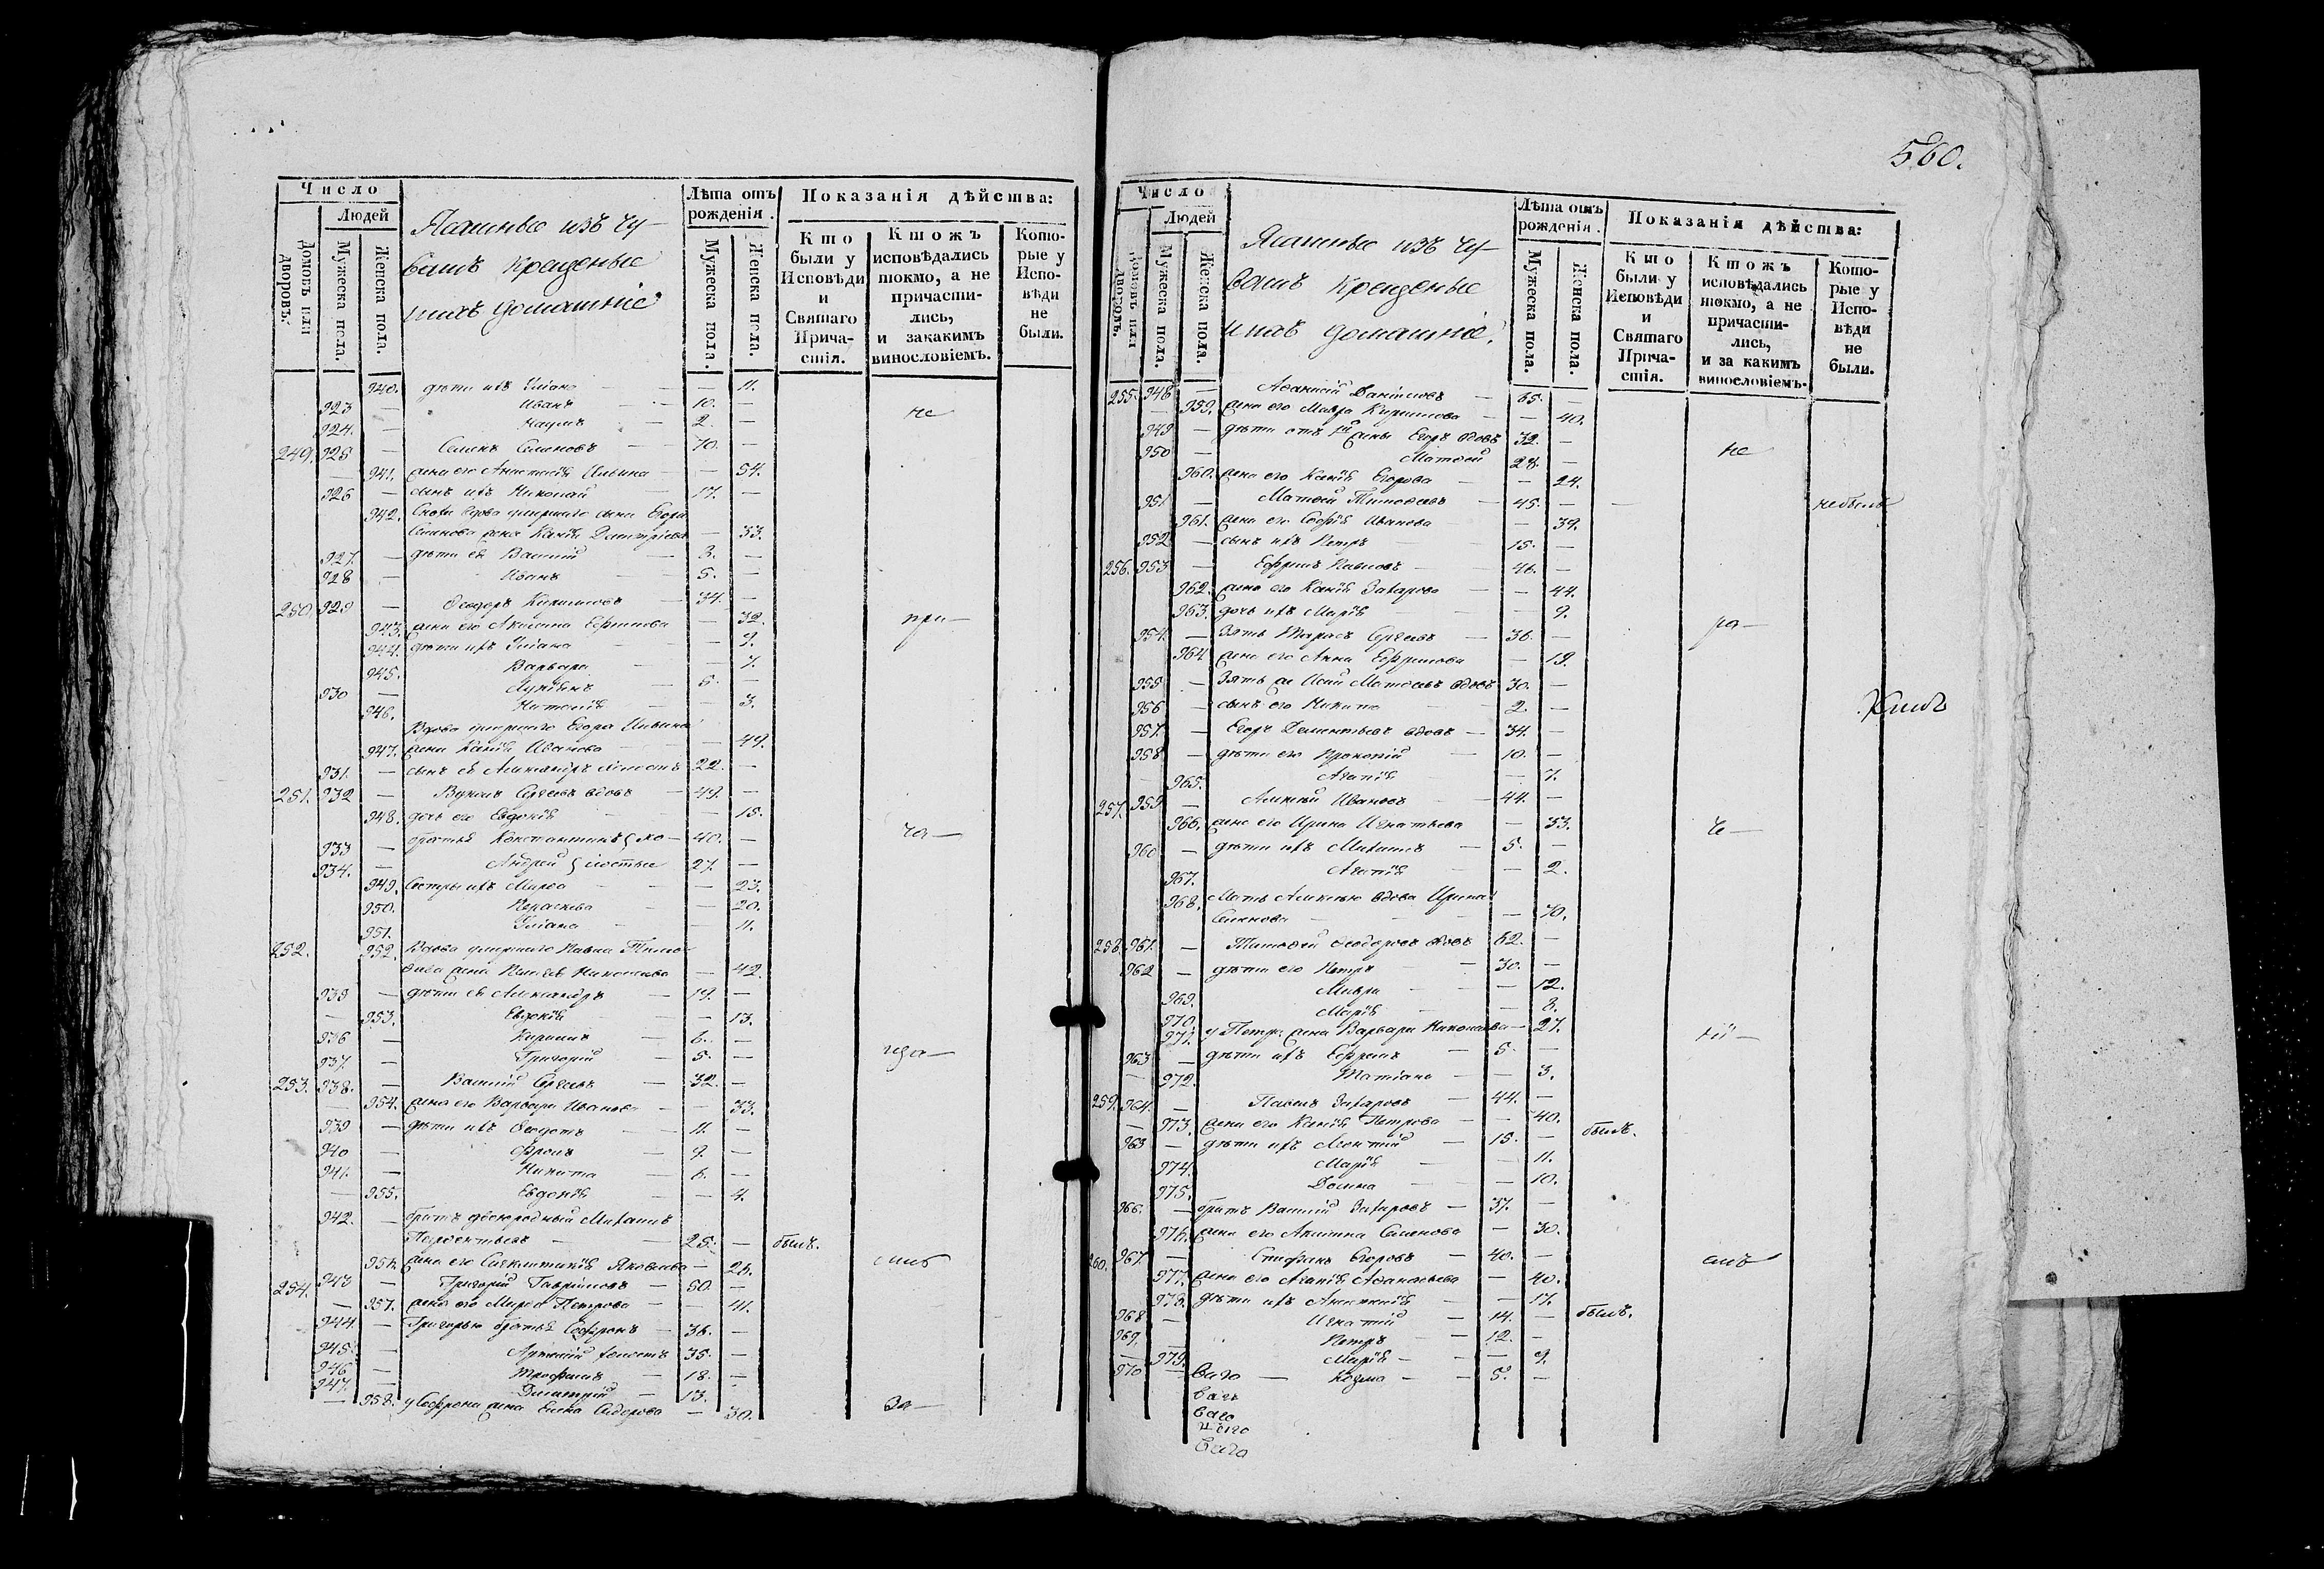 560.
Число
Людей
Домовъ или дворовъ.
Мужеска пола.
Женска пола.
Ясашные изъ чу-
вашъ крещеные
и ихъ домашніе
Лѣта отъ рожденія.
Мужеска пола.
Женска пола.
Показанія дѣйства:
Кто были у Исповѣди и Святаго Прича-стія.
Ктожъ исповѣдались токмо, а не причасти-лись, и закакимъ винословіемъ.
Кото-рые у Испо-вѣди не были.
940. дѣти ихъ Уліана — 11.
923 — Иванъ 10. — не
924. — Наумъ 2. —
249. 925 — Семенъ Семеновъ 70. —
— 941. жена его Анастасія Ильина — 54.
926 — сынъ ихъ Николай 17. —
942. Сноха вдова умершаго сына Егора
Семенова жена Ксенія Дмитріева — 33.
927. — дѣти ея Василій 3. —
928 — Иванъ 5. —
250. 929 — Ѳеодоръ Кириловъ 34. —
943. жена его Акилина Ефимова — 32. при—
944. дѣти ихъ Уліана — 9.
945. Варвара — 7.
930 — Лукіянъ 5. —
946. Наталія — 3.
Вдова умершаго Егора Ильина
947. жена Ксенія Иванова — 49.
931. — сынъ ея Александръ холостъ 22. —
251. 932 — Вуколъ Сергѣевъ вдовъ 49. —
948. дочь его Евдокія — 15.
933 — братья Константинъ хо- 40. — ча—
934. — Андрей лостые 27. —
949. Сестры ихъ Марѳа — 23.
950. Параскева — 20.
951. Уліана — 11.
252. 952. Вдова умершаго Павла Тимо-
ѳеева жена Николаева — 42.
935 — дѣти ея Александръ 19. —
— 953. Евдокія — 13.
936 — Кирилъ 6. —
937. — Григорій 5. — ща—
253. 938. — Василій Сергѣевъ 32. —
— 954. жена его Варвара Иванова — 33.
939 — дѣти ихъ Ѳедотъ 11. —
940 — Фролъ 9. —
941. — Никита 6. —
— 955. Евдокія — 4.
942. — братъ двоюродный Михаилъ
25. — былъ.
956. жена его Яковлева —
254. 943 — Григорій Гавриловъ 50. —
— 957. жена его Марѳа Петрова —
944. — Григорью братья Софронъ 36. —
945. — Артемій холостъ 35. —
946 — Трофимъ 18. —
947. — Димитрій 13.
— 958. у Софрона жена Елена Сидорова — 30. За—
Число
Людей
Домовъ или дворовъ.
Мужеска пола.
Женска пола.
Ясашные изъ чу-
вашъ крещеные
и ихъ домашніе.
Лѣта отъ рожденія.
Мужеска пола.
Женска пола.
Показанія дѣйства:
Кто были у Исповѣди и Святаго Прича-стія.
Ктожъ исповѣдались токмо, а не причасти-лись, и за какимъ винословіемъ.
Кото-рые у Испо-вѣди не были.
255. 948 — Аѳанасій Даниловъ 65. —
— 959. жена его Мавра Кирилова — 40.
949 — дѣти отъ 1й жены Егоръ вдовъ 32. —
950 — Матѳей 28. — не
960. жена его Ксенія Егорова — 24.
951. — Матѳей Тимоѳеевъ 45. — небылъ
961. жена его Софія Иванова — 39.
952 — сынъ ихъ Петръ 15. —
256. 953 — Ефремъ Павловъ 46. —
962. жена его Ксенія Захарова — 44.
963. дочь ихъ Марія — 9.
954. — Зять Тарасъ Сергѣевъ 36. — ра—
964 жена его Анна Ефремова — 19.
955 — Матѳеевъ вдовъ 30. —
956 — сынъ его Никита 2. —
957. — Егоръ Дементьевъ вдовъ 34. —
958 — дѣти его Прокопій 10. —
— 965. Агапія — 7.
257. 959 — Алексѣй Ивановъ 44. —
966. жена его Ирина Игнатьева — 33. че—
960 — дѣти ихъ Михаилъ 5. —
967. Агапія — 2.
968. Мать Алексѣю вдова Ирина
Семенова — 70.
258. 961. — Тимоѳей Ѳеодоровъ вдовъ 62. —
962 — дѣти его Петръ 30. —
969. Мавра — 12.
970. Марія — 8.
971. у Петра жена Варвара Николаева — 27. ніи—
963 — дѣти ихъ Ефремъ 5. —
— 972. Татіана — 3.
259. 964. — Павелъ Захаровъ 44. —
— 973. жена его Ксенія Петрова — 40.
965 — дѣти ихъ Леонтій 15. — былъ.
974. Марія — 11.
975. Домна — 10.
966. — братъ Василій Захаровъ 37. —
976. жена его Акилина Семенова — 30.
260. 967. — Стефанъ Егоровъ 40. —
977. жена его Агапія Аѳанасьева — 40.
978. дѣти ихъ Анастасія — 17.
968 — Игнатій 14. — былъ.
969. — Петръ 12. —
— 979. Марія — 9.
970 — Козма 5. —